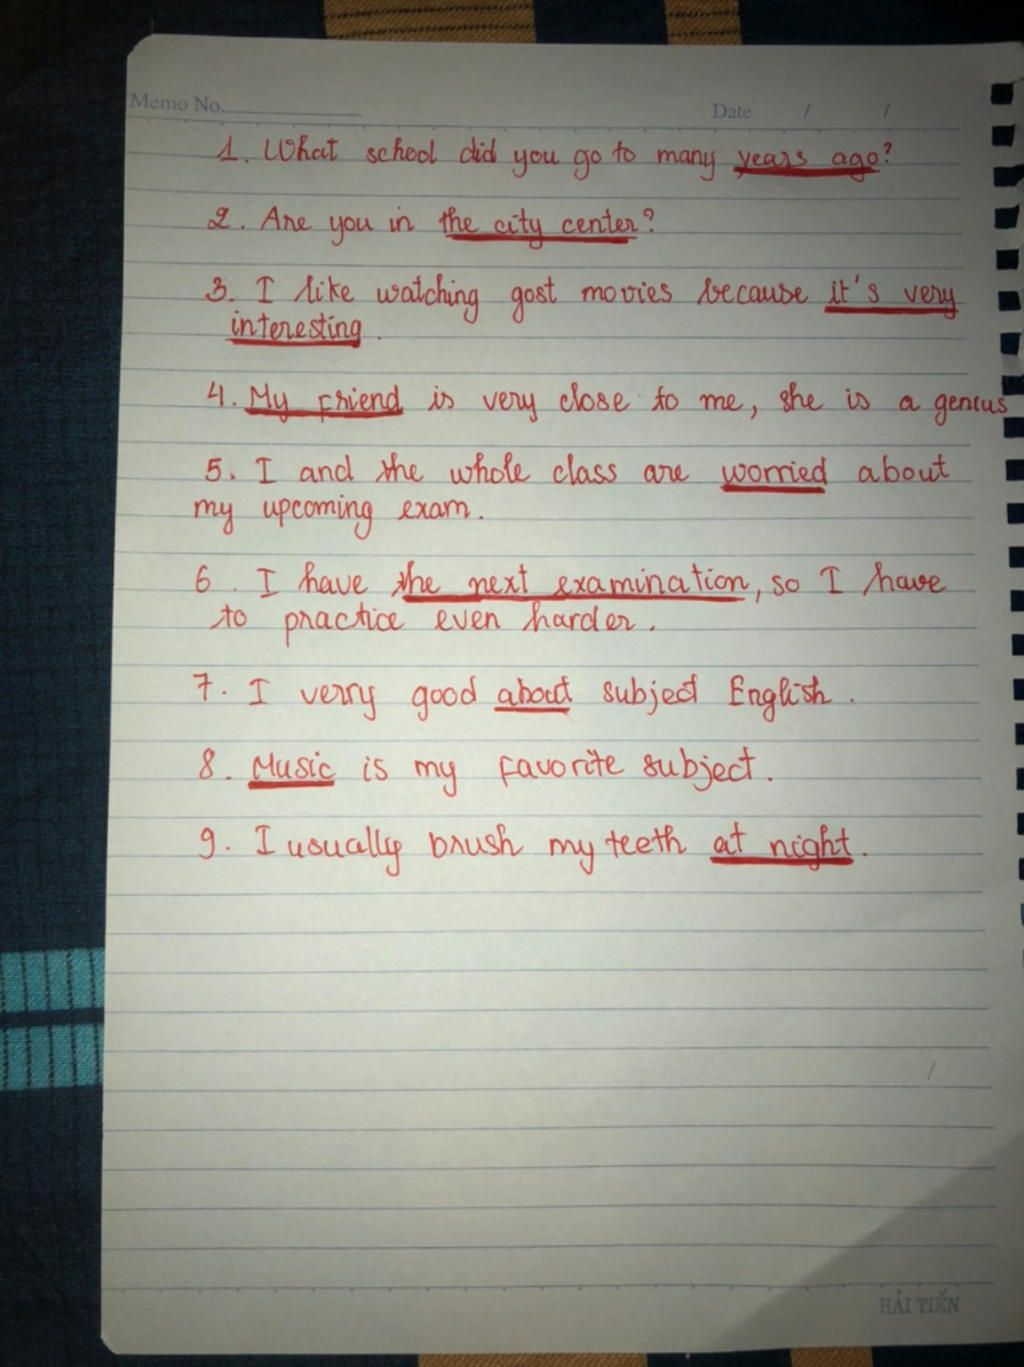 Memo No.
Date / /
1. What school did you go to many years ago?
2. Are you in the city center?
3. I like watching gost movies because it's very
interesting.
4. My friend is very close to me, she is a genius
5. I and the whole class are worried about
my upcoming exam.
6. I have the next examination, so I have
to practice even harder.
7. I verry good about subject English.
8. Music is my favorite subject.
9. I usually brush my teeth at night.
HẢI TIẾN